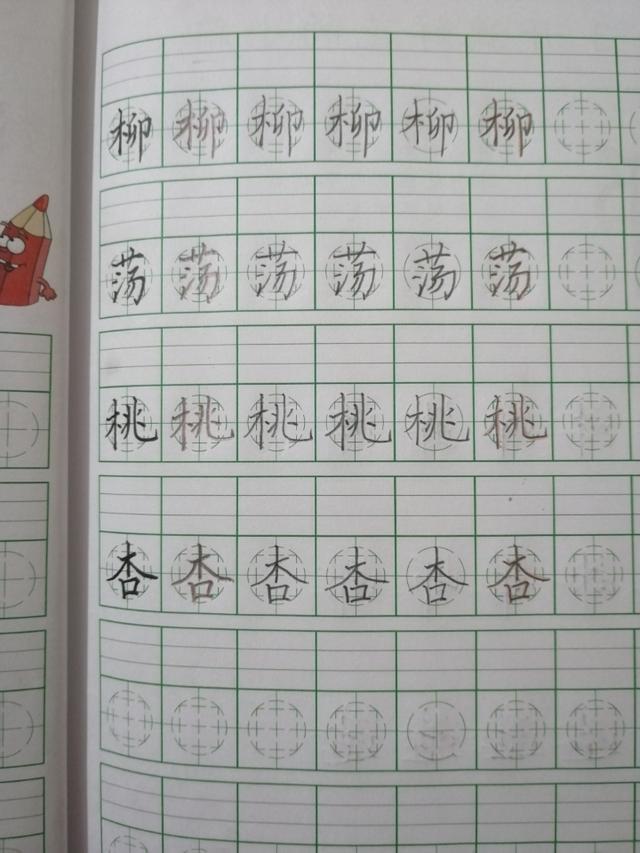 柳柳柳柳柳柳
荡荡荡荡荡荡
桃桃桃桃桃桃
杏杏杏杏杏杏